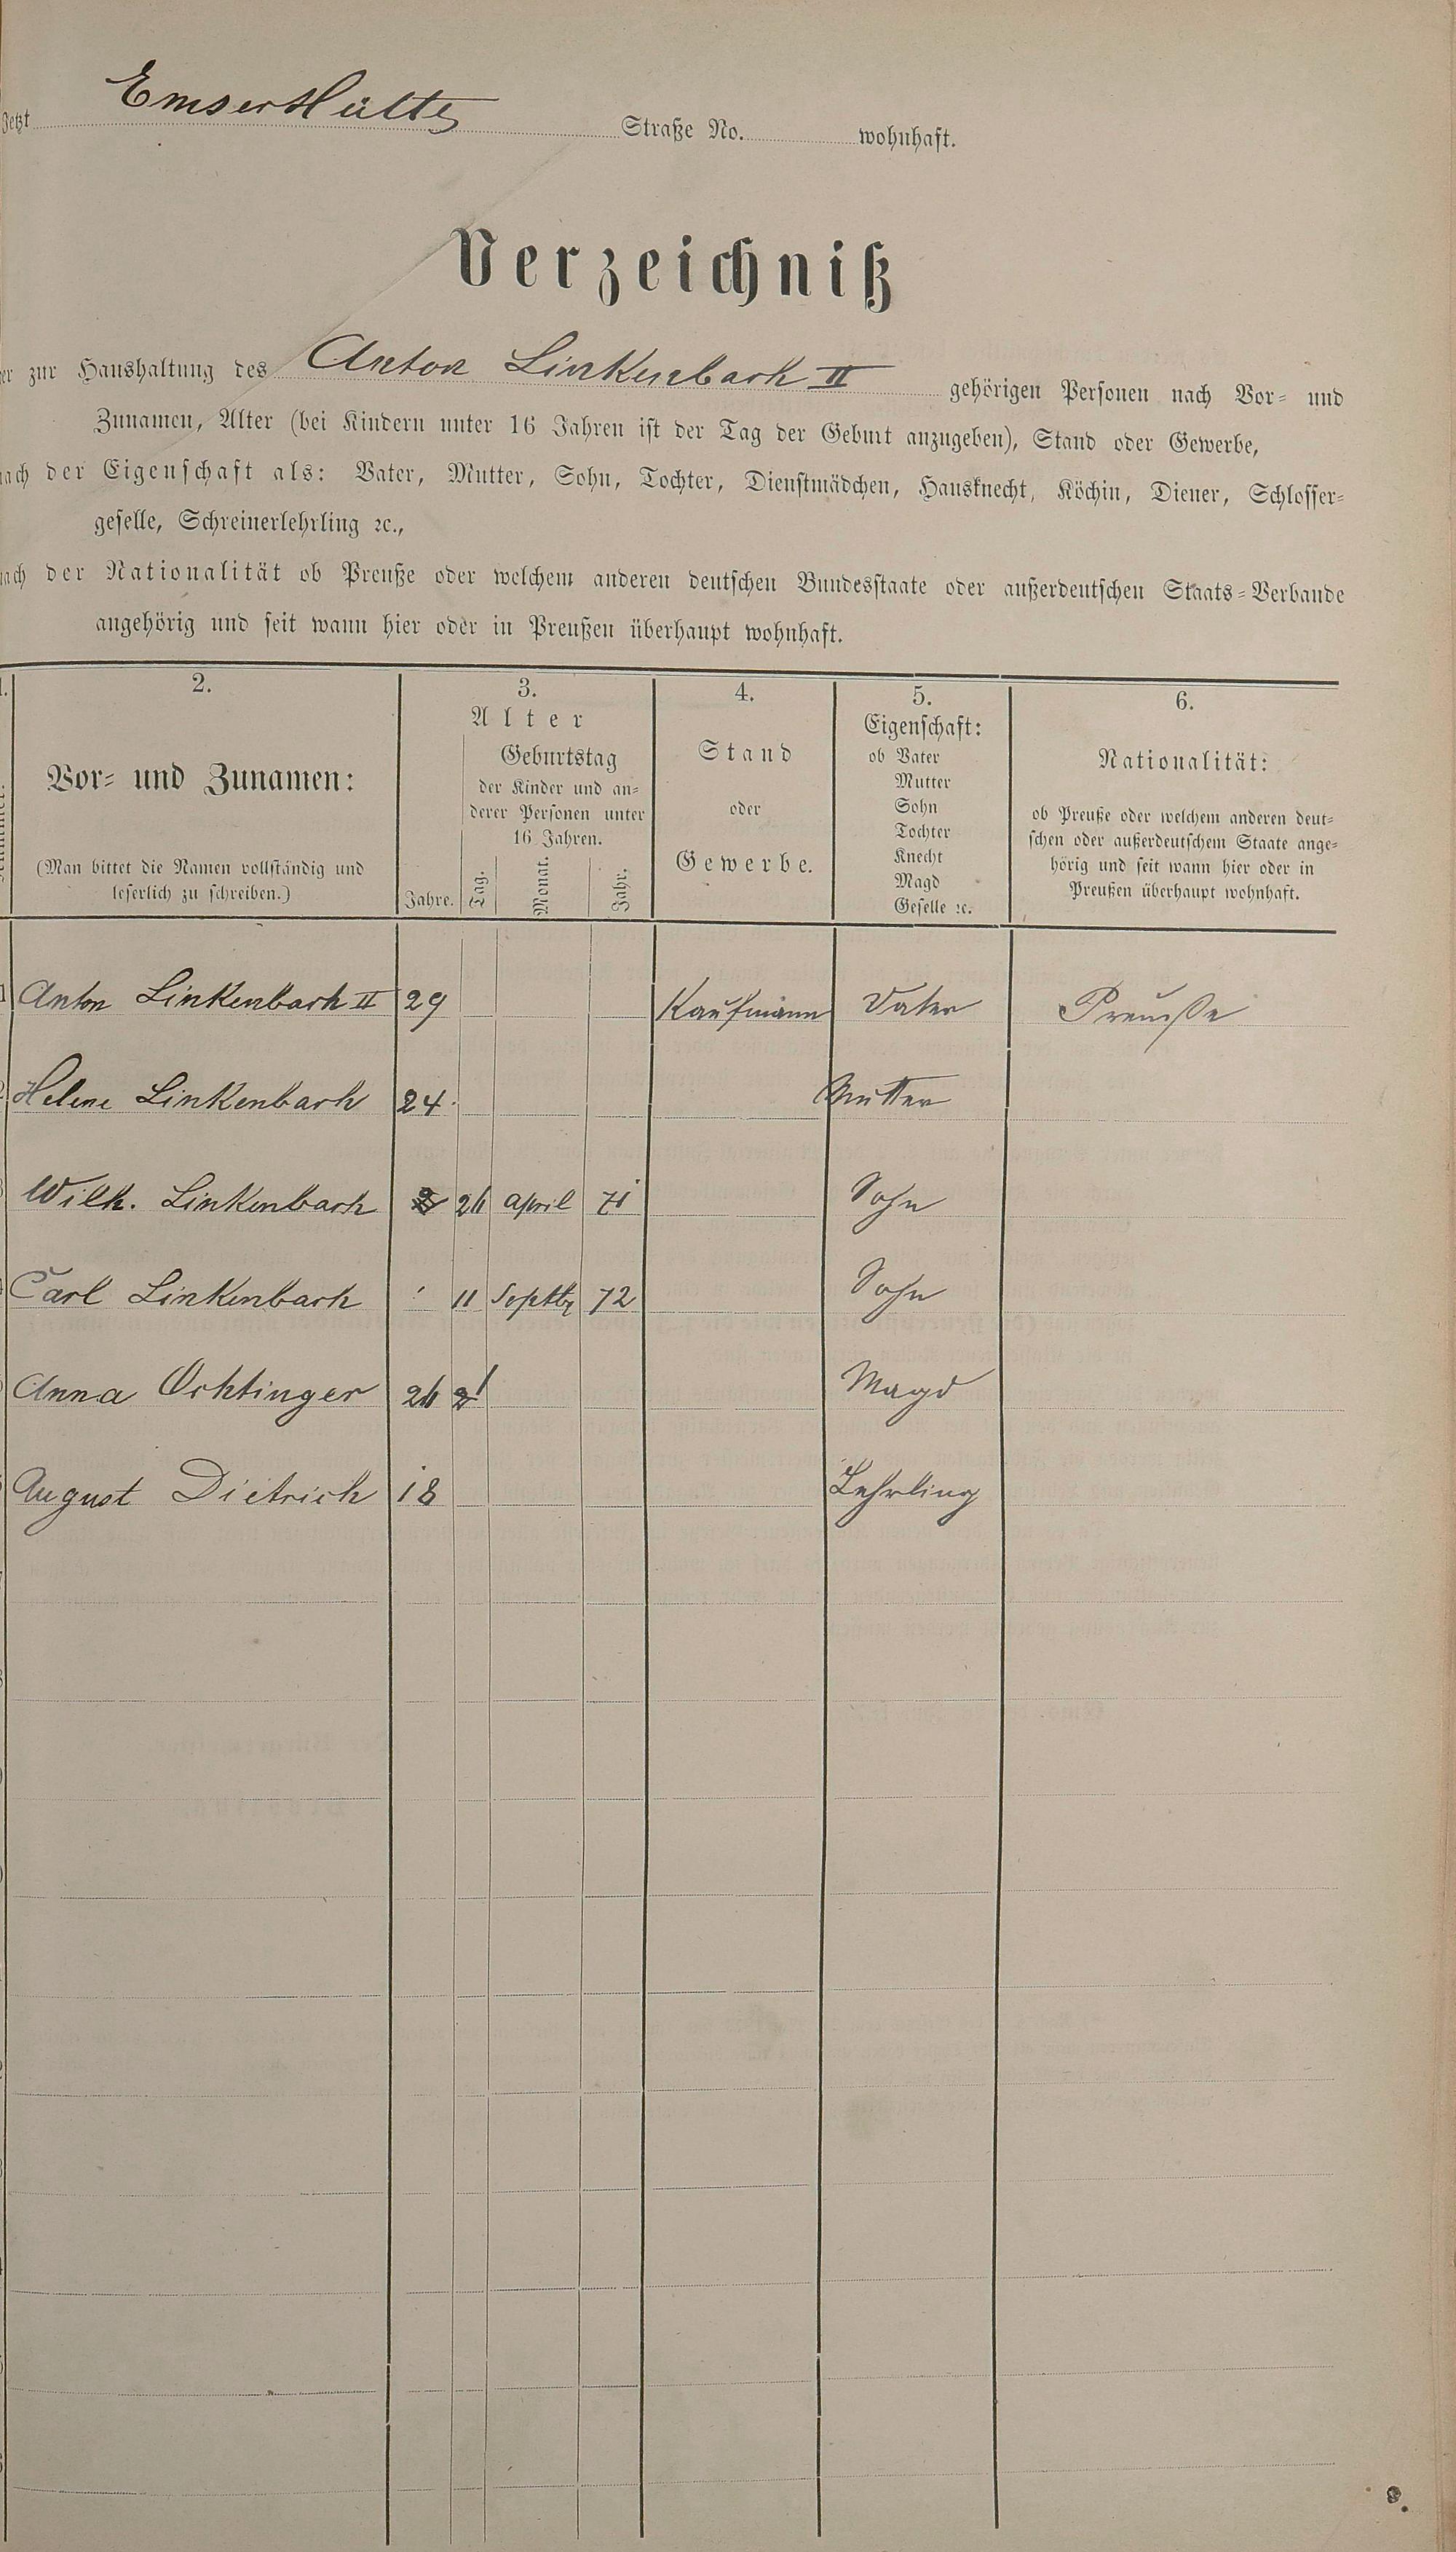 Jetzt EmserHütte Straße No. wohnhaft.
Verzeichniß
zur Haushaltung des Anton Linkenbach II gehörigen Personen nach Vor- und
Zunamen, Alter (bei Kindern unter 16 Jahren ist der Tag der Geburt anzugeben), Stand oder Gewerbe,
nach der Eigenschaft als: Vater, Mutter, Sohn, Tochter, Dienstmädchen, Hausknecht, Köchin, Diener, Schlosser-
geselle, Schreinerlehrling ꝛc.,
nach der Nationalität ob Preuße oder welchem anderen deutschen Bundesstaate oder außerdeutschen Staats-Verbande
angehörig und seit wann hier oder in Preußen überhaupt wohnhaft.
1. 2. 3. 4. 5. 6.
Vor- und Zunamen:
(Man bittet die Namen vollständig und
leserlich zu schreiben.)
Alter
Jahre.
Geburtstag
der Kinder und an-
derer Personen unter
16 Jahren.
Tag. Monat. Jahr.
Stand
oder
Gewerbe.
Eigenschaft:
ob Vater
Mutter
Sohn
Tochter
Knecht
Magd
Geselle ꝛc.
Nationalität:
ob Preuße oder welchem anderen deut-
schen oder außerdeutschem Staate ange-
hörig und seit wann hier oder in
Preußen überhaupt wohnhaft.
1 Anton Linkenbach II 29 Kaufmann Vater Preuße
Helene Linkenbach 24 Mutter
Wilh. Linkenbach 26 april 71 Sohn
Carl Linkenbach 11 Septbr 72 Sohn
Anna Ochtinger 26 Magd
August Dietrich 18 Lehrling